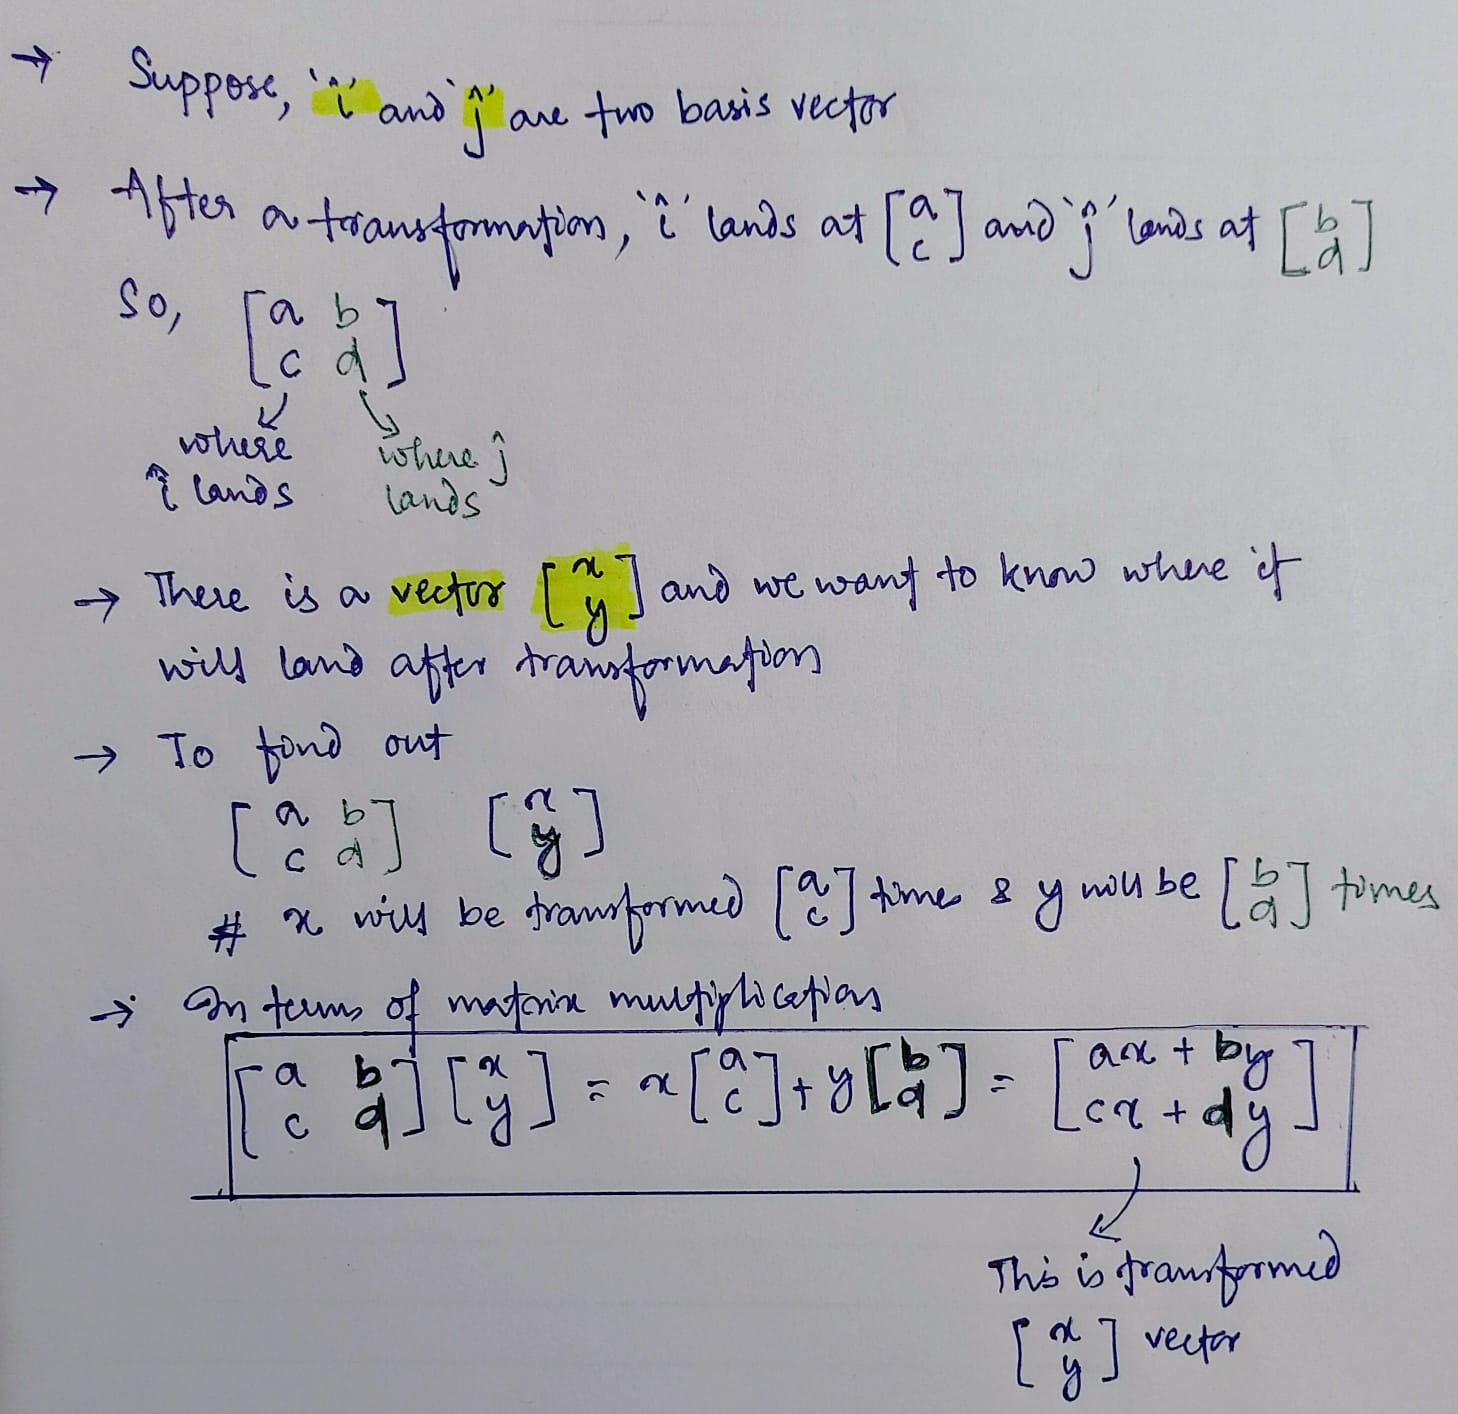 → Suppose, 'î' and 'ĵ' are two basis vector
→ After a transformation, 'î' lands at [a c] and 'ĵ' lands at [b d]
So, [a b
c d]
where where ĵ
î lands lands
→ There is a vector [x y] and we want to know where it
will land after transformation
→ To find out
[a b] [x]
[c d] [y]
# x will be transformed [a c] times & y will be [b d] times
→ In terms of matrix multiplication
[a b] [x] = x[a] + y[b] = [ax + by]
[c d] [y] [c] [d] [cx + dy]
This is transformed
[x y] vector